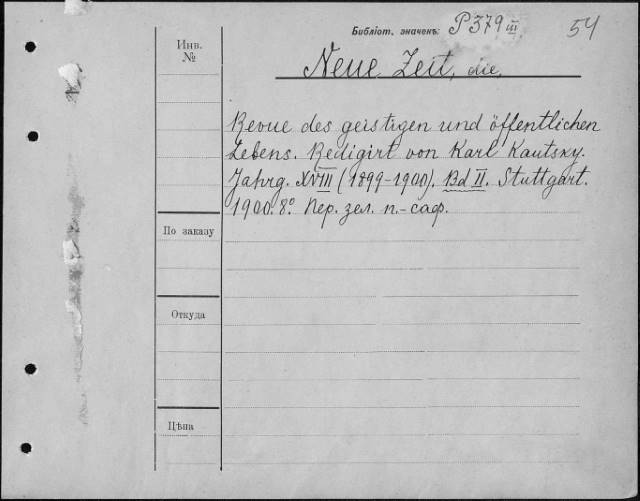 Библіот. значенк: P 379 III 54
Инв.
№
Neue Zeit, die,
Revue des geistigen und öffentlichen
Lebens. Redigirt von Karl Kautsky.
Jahrg. XVIII (1899-1900). Bd II. Stuttgart.
1900. 8°. Пер. зел. п.-саф.
По заказу
Откуда
Цѣна